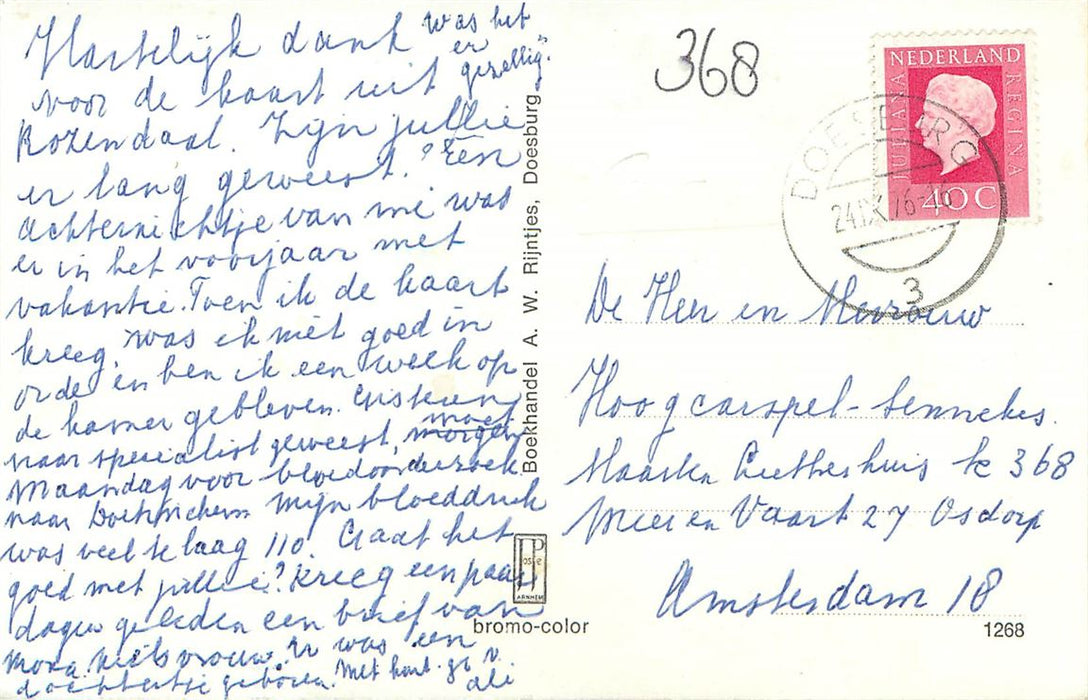 Hartelijk dank was het
voor de kaart uit er gezellig?
Rozendaal. Zijn jullie
er lang geweest? Een
achternichtje van mij was
er in het voorjaar met
vakantie. Toen ik de kaart
kreeg, was ik niet goed in
orde en ben ik een week op
de kamer gebleven. Gisteren
naar specialist geweest, moet morgen
Maandag voor bloedonderzoek
naar Doetinchem Mijn bloeddruk
was veel te laag 110. Gaat het
goed met jullie? Kreeg een paar
dagen geleden een brief van
vrouw. Er was een
dochtertje geboren. Met hart. gr. v.
Ali
Boekhandel A. W. Rijntjes, Doesburg
JP
ARNHEM
bromo-color
368
NEDERLAND
JULIANA
REGINA
40C
DOESBURG
24.IX.76-16
3
De Heer en Mevrouw
Hoogcarspel-Sennekes.
Maarten Lutherhuis k 368
Meer en Vaart 27 Osdorp
Amsterdam 18
1268